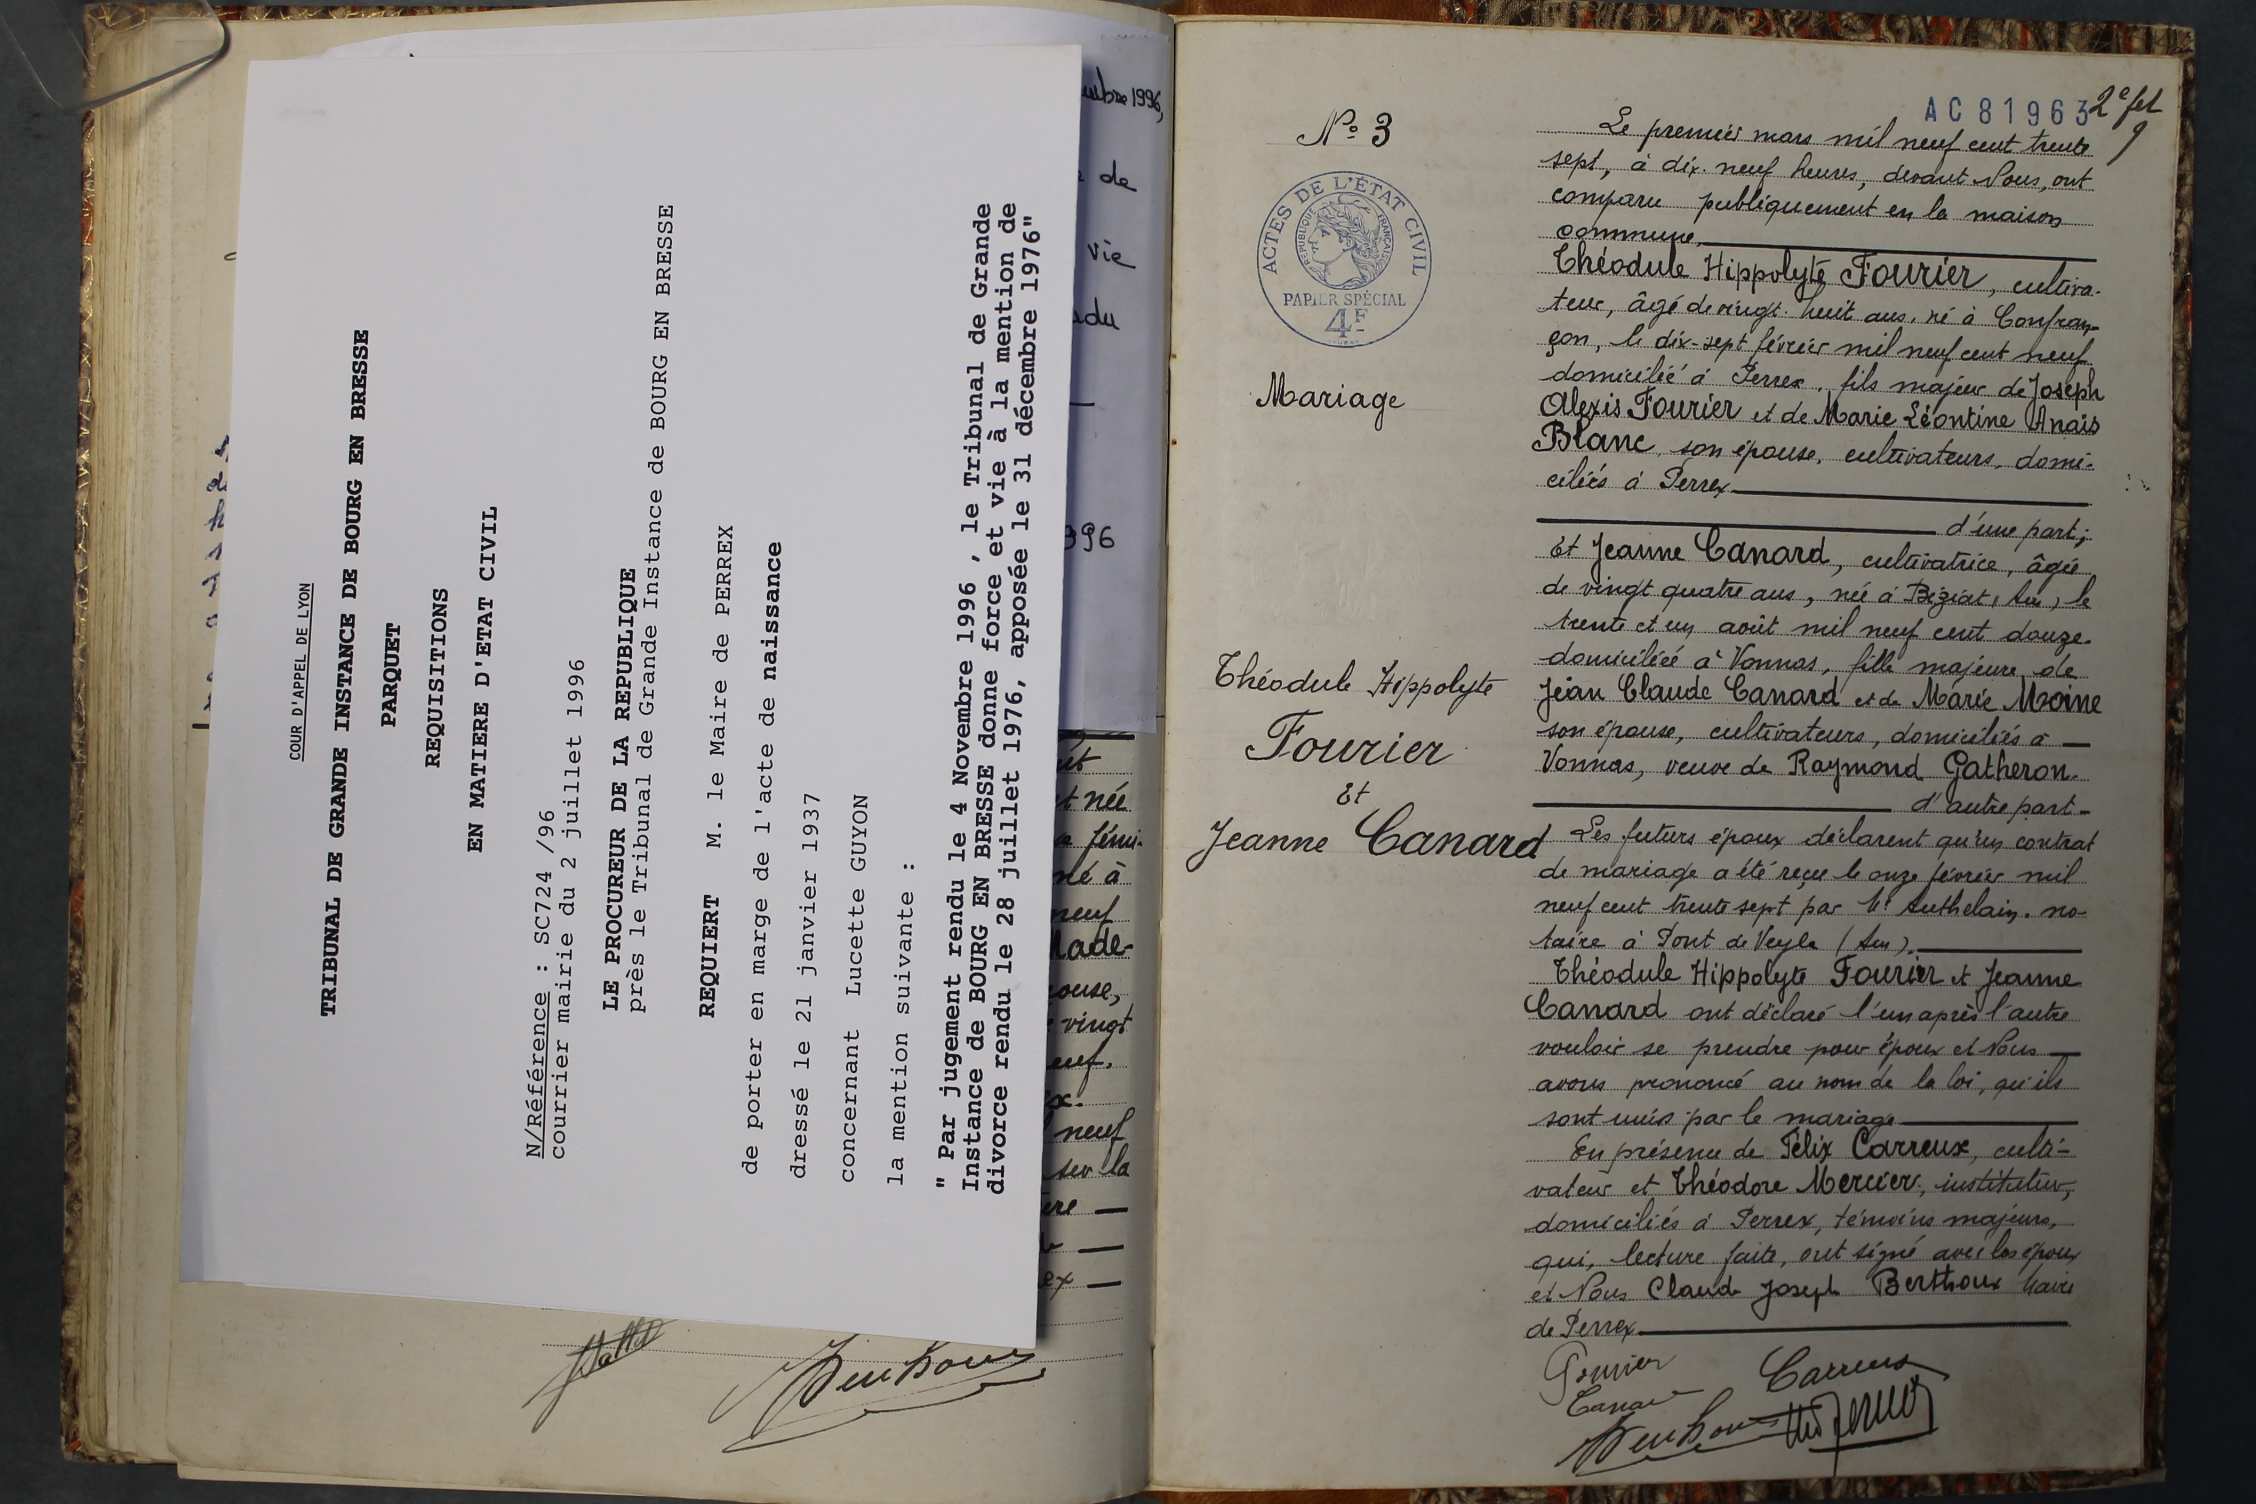 COUR D'APPEL DE LYON
TRIBUNAL DE GRANDE INSTANCE DE BOURG EN BRESSE
PARQUET
REQUISITIONS
EN MATIERE D'ETAT CIVIL
N/Référence : SC724 /96
courrier mairie du 2 juillet 1996
LE PROCUREUR DE LA REPUBLIQUE
près le Tribunal de Grande Instance de BOURG EN BRESSE
REQUIERT M. le Maire de PERREX
de porter en marge de l'acte de naissance
dressé le 21 janvier 1937
concernant Lucette GUYON
la mention suivante :
" Par jugement rendu le 4 Novembre 1996 , le Tribunal de Grande
Instance de BOURG EN BRESSE donne force et vie à la mention de
divorce rendu le 28 juillet 1976, apposée le 31 décembre 1976"
1996,
de
vie
née
né à
neuf
vingt
neuf
sur la
AC81963
2e fet
9
N° 3
ACTES DE L'ÉTAT CIVIL
RÉPUBLIQUE FRANÇAISE
PAPIER SPÉCIAL
4F
Mariage
Théodule Hippolyte
Fourier
Et
Jeanne Canard
Le premier mars mil neuf cent trente
sept, à dix-neuf heures, devant Nous, ont
comparu publiquement en la maison
commune.
Théodule Hippolyte Fourier, cultiva-
teur, âgé de vingt-huit ans, né à Confran-
çon, le dix-sept février mil neuf cent neuf
domicilié à Perrex, fils majeur de Joseph
Alexis Fourier et de Marie Léontine Anaïs
Blanc, son épouse, cultivateurs, domi-
ciliés à Perrex
d'une part;
Et Jeanne Canard, cultivatrice, âgée
de vingt quatre ans, née à Béziat, (Ain), le
trente et un août mil neuf cent douze
domiciliée à Vonnas, fille majeure de
Jean Claude Canard et de Marie Moine
son épouse, cultivateurs, domiciliés à
Vonnas, veuve de Raymond Gatheron.
d'autre part-
Les futurs époux déclarent qu'un contrat
de mariage a été reçu le onze février mil
neuf cent trente sept par Me Authelain, no-
taire à Pont de Veyle (Ain).
Théodule Hippolyte Fourier et Jeanne
Canard ont déclaré l'un après l'autre
vouloir se prendre pour époux et Nous
avons prononcé au nom de la loi, qu'ils
sont unis par le mariage
En présence de Félix Carreux, culti-
vateur et Théodore Mercier, instituteur,
domiciliés à Perrex, témoins majeurs,
qui, lecture faite, ont signé avec les époux
et Nous Claude Joseph Berthoux Maire
de Perrex
Fourier
Canard
Carreux